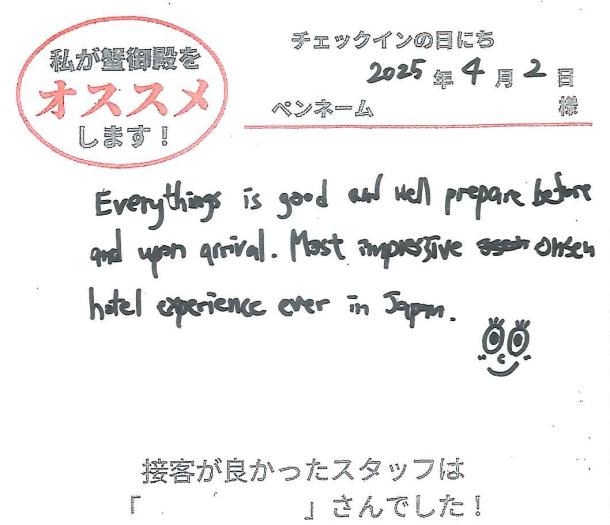 私が蟹御殿を
オススメ
します！
チェックインの日にち
2025年4月2日
ペンネーム 様
Everythings is good and well prepare before
and upon arrival. Most impressive onsen
hotel experience ever in Japan.
接客が良かったスタッフは
「 」さんでした！